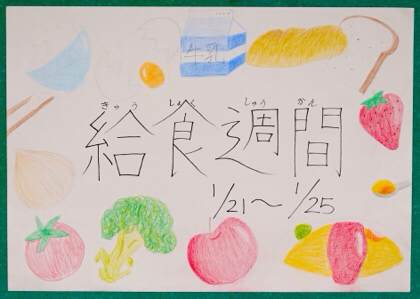 牛乳
きゅう しょく しゅう かん
給食週間
1/21〜1/25